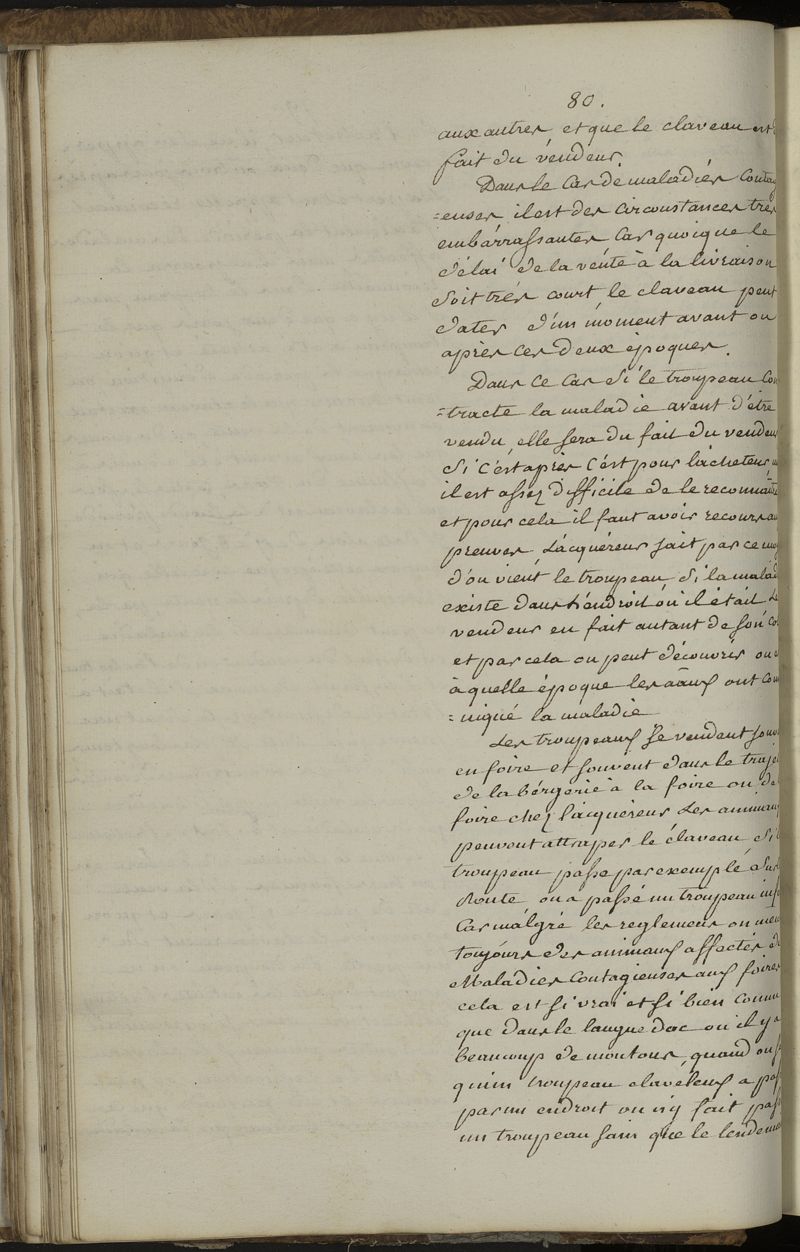 80.
aux autres, et que le claveau est
fait du vendeur.
Dans le Cas de maladies Contag
=euses il est des circonstances tres
embarrassantes Car quoique le
délai de la vente à la livraison
Soit très court, le claveau peut
dater d'un moment avant ou
après ces deux époques.
Dans ce Cas Si le troupeau Con
=tracte la maladie avant d'être
vendu, elle sera du fait du vendeur
Si c'est après c'est pour l'acheteur
il est assez difficile de le reconnaître
et pour cela il faut avoir recours au
preuves L'acquéreur sait par ce moy
d'où vient le troupeau, Si la malad
existe dans l'endroit où il était Le
vendeur en fait autant de son Co
et par cela on peut découvrir ou
à quelle époque les aãux ont Com
=niqué la maladie
Les troupeaux Se vendent souv
en foire et souvent dans le traje
de la bérgerie à la foire ou de
foire chez l'acquéreur Les animaux
peuvent attraper le claveau Si
troupeau passe par exemple Sur
Route, ou a passé un troupeau inf
Car malgré les reglemens on mene
toujours des animaux affectés de
Maladies Contagieuses aux foires
cela est si vrai et si bien Connu
que dans le langue doc où il y a
beaucoup de moutons, quand on s
qu'un troupeau claveleux a pas
par un endroit on n'y fait pass
un troupeau sain que le lendema